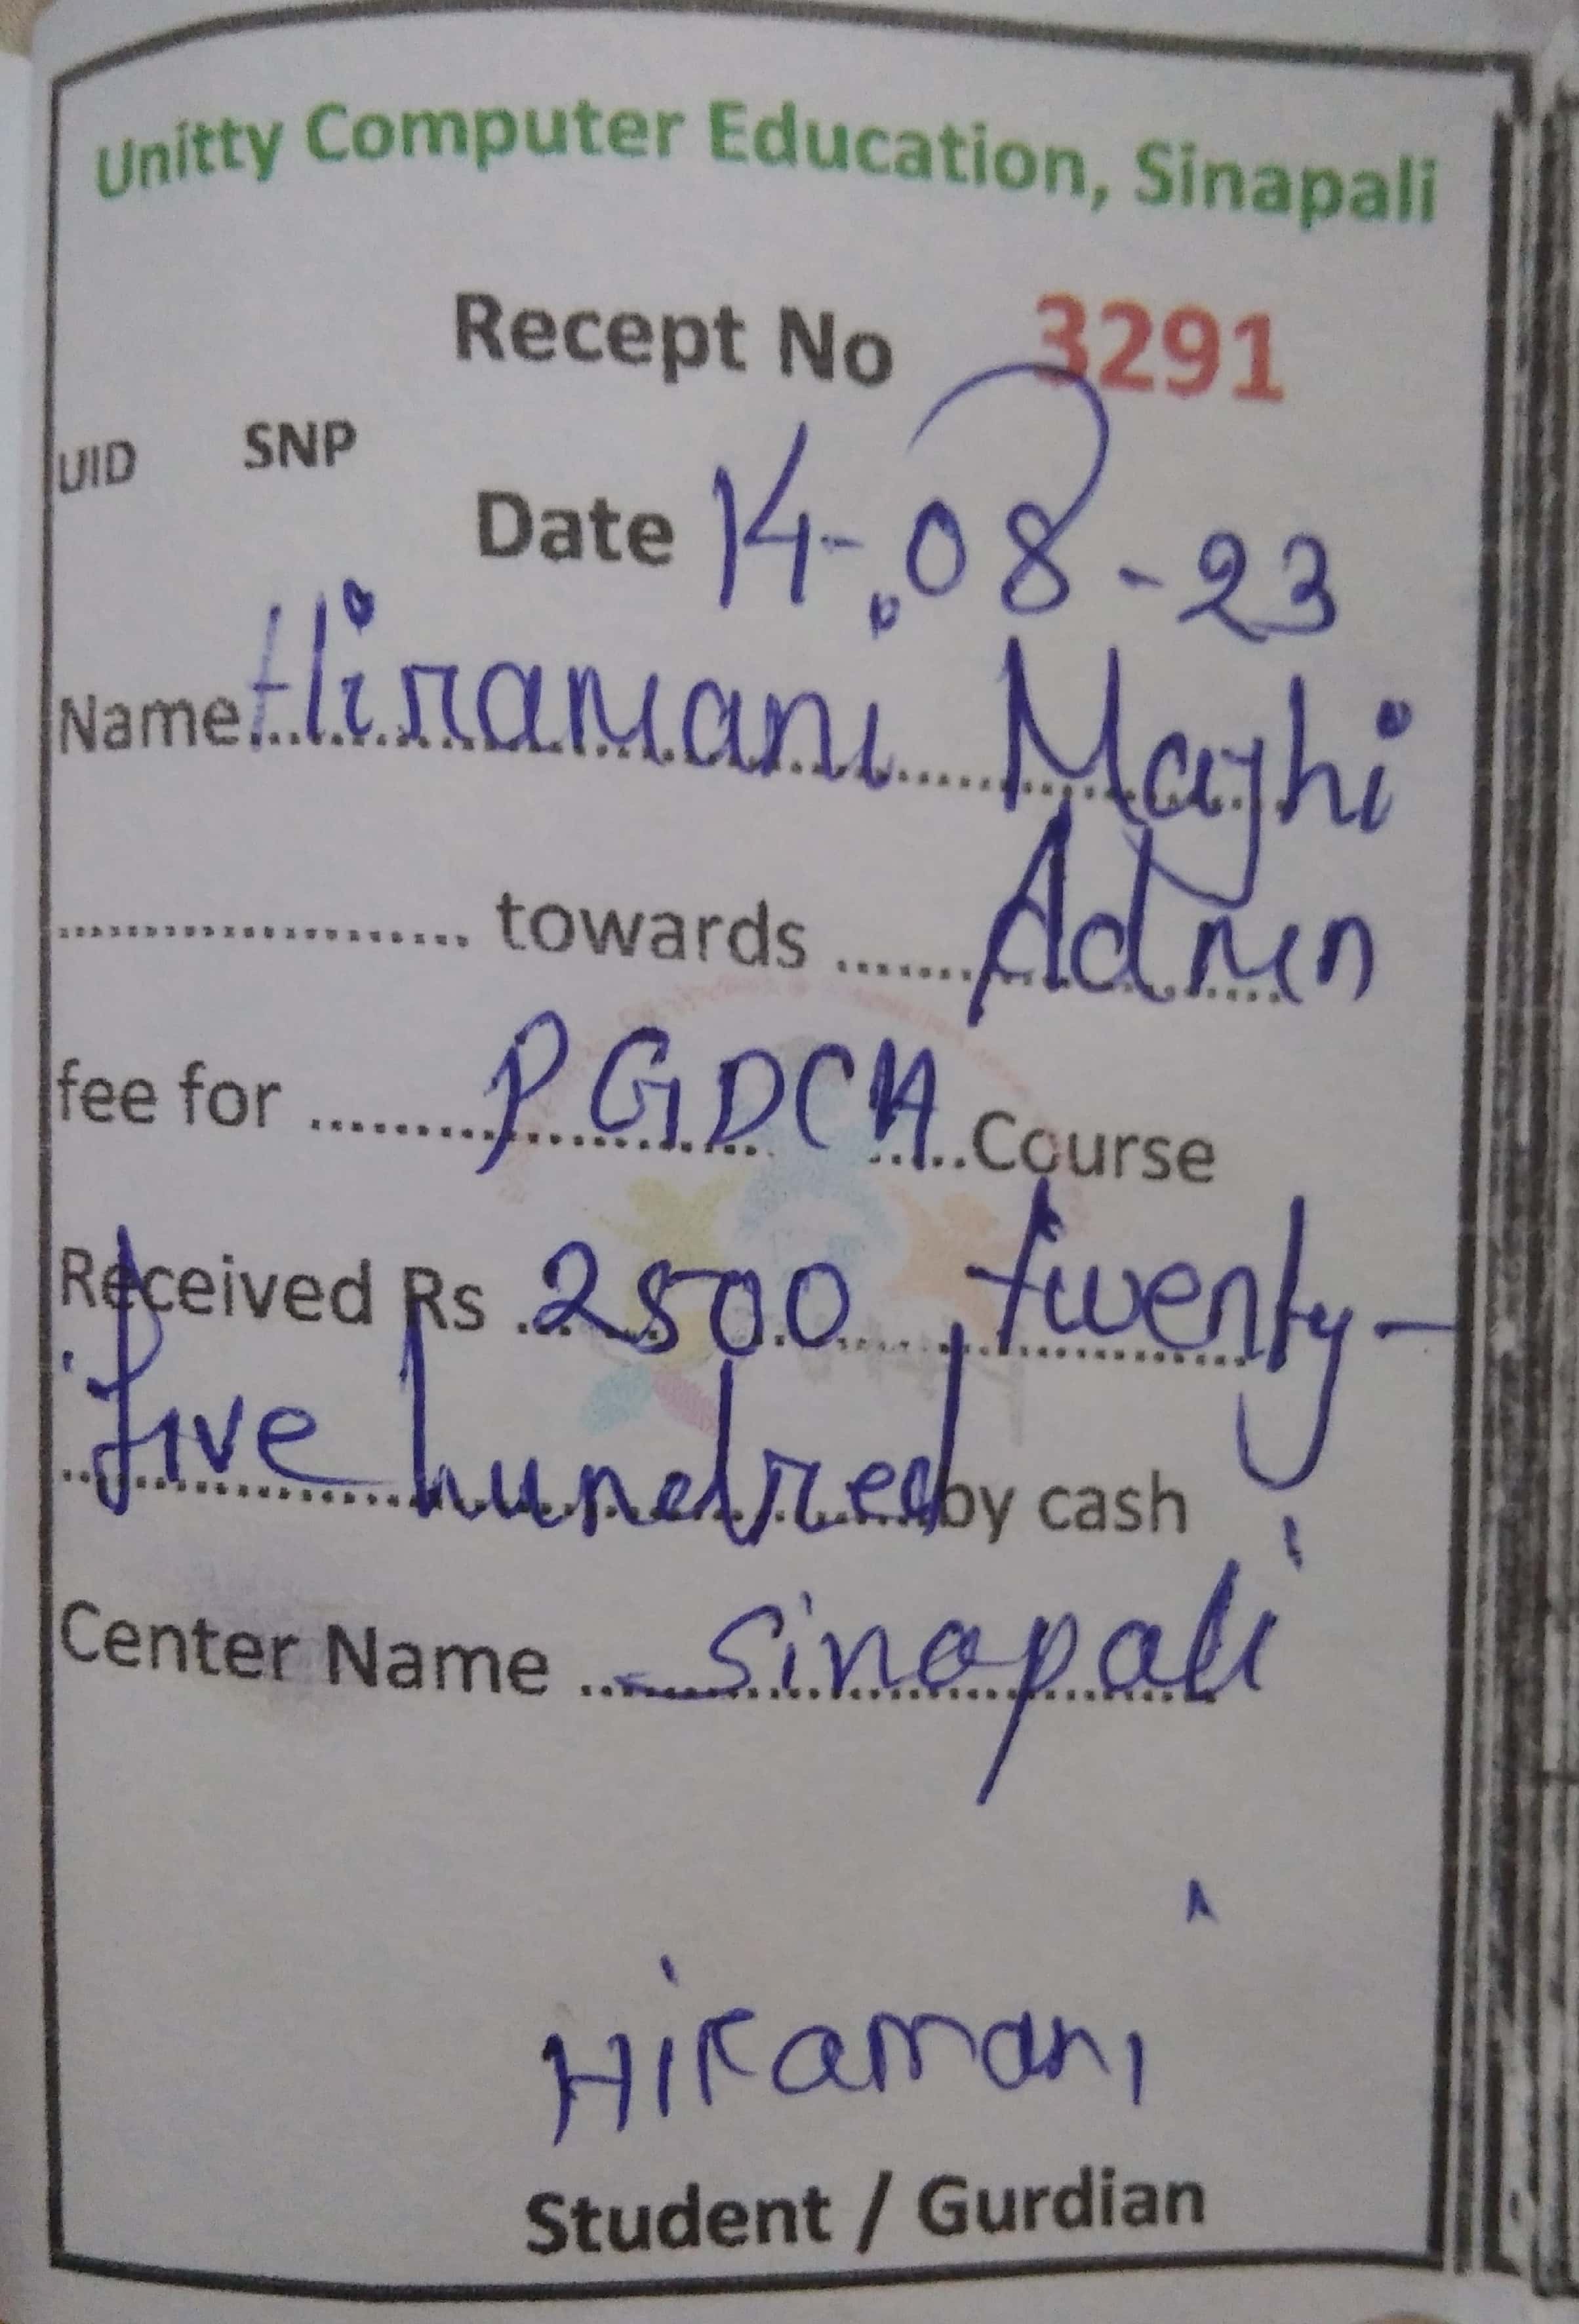 Unitty Computer Education, Sinapali
Recept No 3291
UID SNP
Date 14-08-23
Name Hiramani Majhi
towards Admn
fee for PGDCA Course
Received Rs 2500 twenty-
five hundred by cash
Center Name Sinapali
Hiramani
Student / Gurdian